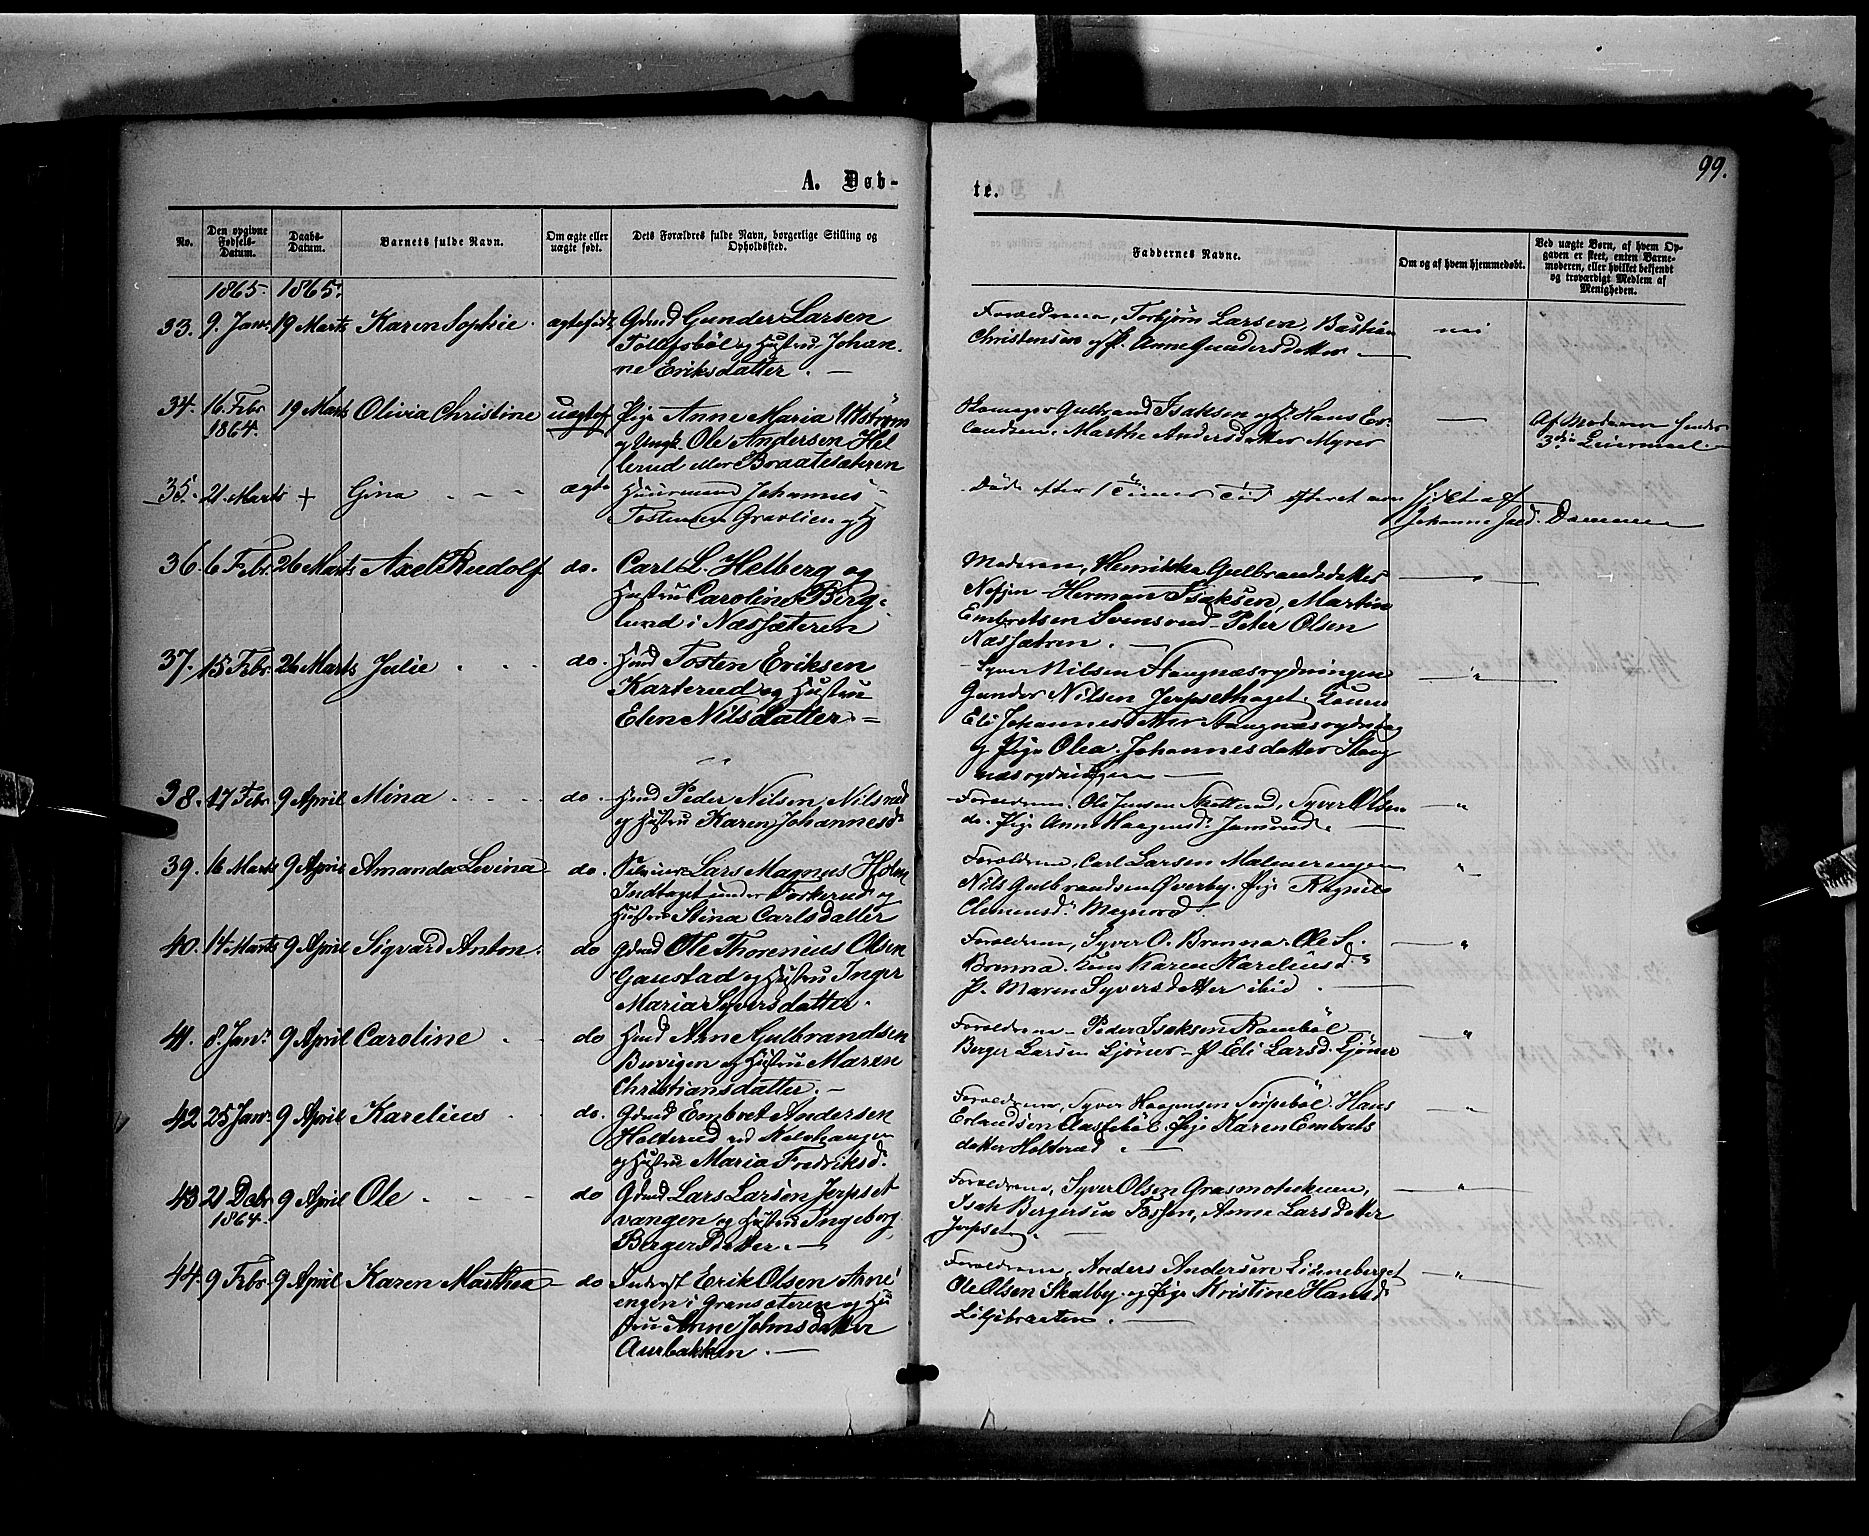 99.
A. Døb-
te.
No.
Den opgivne Fødsels-Datum.
Daabs-Datum.
Barnets fulde Navn.
Om ægte eller uægte født.
Dets Forældres fulde Navn, borgerlige Stilling og Opholdssted.
Faddernes Navne.
Om og af hvem hjemmedøbt.
Ved uægte Børn, af hvem Opgaven er skeet, enten Barnemoderen, eller hvilket bekjendt og troværdigt Medlem af Menigheden.
1865. 1865.
33. 9. Janr. 19 Marts Karen Sophie. ægtefødt Gunder Larsen
og Hustru Johan-
ne Eriksdatter. —
Forældrene, Torbjørn Larsen, Bastian
Christensen og P. Anne Gundersdatter —
nei
34. 16 Febr 1864. 19 Marts Olivia Christine uægte Pige Anne Maria
og Ungk. Ole Andersen Hel-
lerud eller Braatesæteren
Gulbrand Isaksen og Hans Er-
landsen, Marthe Andersdatter Myrer
Af Moderen hendes
3die Leiermaal. —
35. 21 Marts + Gina ægte Huusmand Johannes
Tostensen Gravlien og H
Døde efter 1 Times Tid
Johanne
36. 6 Febr. 26 Marts Axel Rudolf do. Carl L. Helberg og
Hustru Caroline Berg-
lund i Næssæteren
Moderen, Henrikke Gulbrandsdatter
Herman Isaksen, Martin
Embretsen Svensrud - Peter Olsen
Næssætren. —
37. 15 Febr. 26 Marts Julie do. Hmd Tosten Eriksen
Karterud og Hustru
Elen Nilsdatter =
Syver Nilsen
Gunder Nilsen
Eli Johannesdatter
og Pige Olea Johannesdatter
38. 17 Febr 9 April Mina do. Hmd Peder Nilsen Nilsrud
og Hustru Karen Johannesd.
Forældrene, Ole Jensen Skotterud, Syver Olsen
do. Pige Anne Haagensd.
39. 16 Marts 9 April Amanda Levina do. Lars Magnus Holm
Indtaget under og
Hustru Stina Carlsdatter
Forældrene, Carl Larsen Malmerengen
Nils Gulbrandsen Øverby. Pige Ragnil
Clemensd. Magnord.
40. 14 Marts 9 April Sigvard Anton. do Gdmd Ole Thorenius Olsen
Gaustad og Hustru Inger
Maria Syversdatter.
Forældrene, Syver O. Brenna, Ole S.
Brenna. Kone Karen Kareliusd.
P. Maren Syversdatter ibid. —
41. 8. Janr. 9 April Caroline do Hmd Arne Gulbrandsen
Buvigen og Hustru Maren
Christiansdatter. —
Forældrene - Peder Isaksen Rambøl
Berger Larsen Ljøner - P. Eli Larsd. Ljøner
42. 25 Janr. 9 April Karelius do. Gdmd Embret Andersen
Holterud ved
og Hustru Maria Fredriksd.
Forældrene, Syver Haagensen Hans
Erlandsen Pige Karen Embrets
datter Holterud. —
43 21 Debr 1864. 9 April Ole do Gdmd Lars Larsen Jerpset
vangen og Hustru Ingeborg
Bergersdatter. —
Forældrene, Syver Olsen
Isak Bergersen Fossen, Anne Larsdatter
Jerpset. —
44. 9 Febr. 9 April Karen Marthea do Erik Olsen Arne-
engen i Gransæteren og Hu
stru Anne Johnsdatter
Aurbakken. —
Forældrene, Anders Andersen Linneberget
Ole Olsen Skalby og Pige Kristine Hansd.
Liljibraaten. —